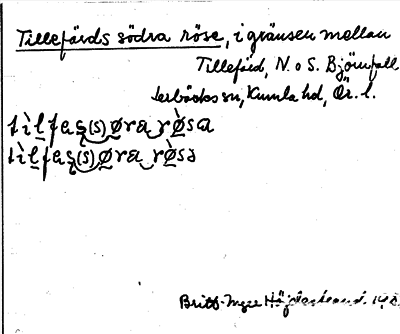 Tillefärds södra röse, i gränsen mellan
Tillefärd, N. o S. Björnfall
Lerbäcks sn, Kumla hd, Ör. l.
tìlfas(s)øra rø̀sa
tìlfas(s)øra rø̀sə
Britt-Inger